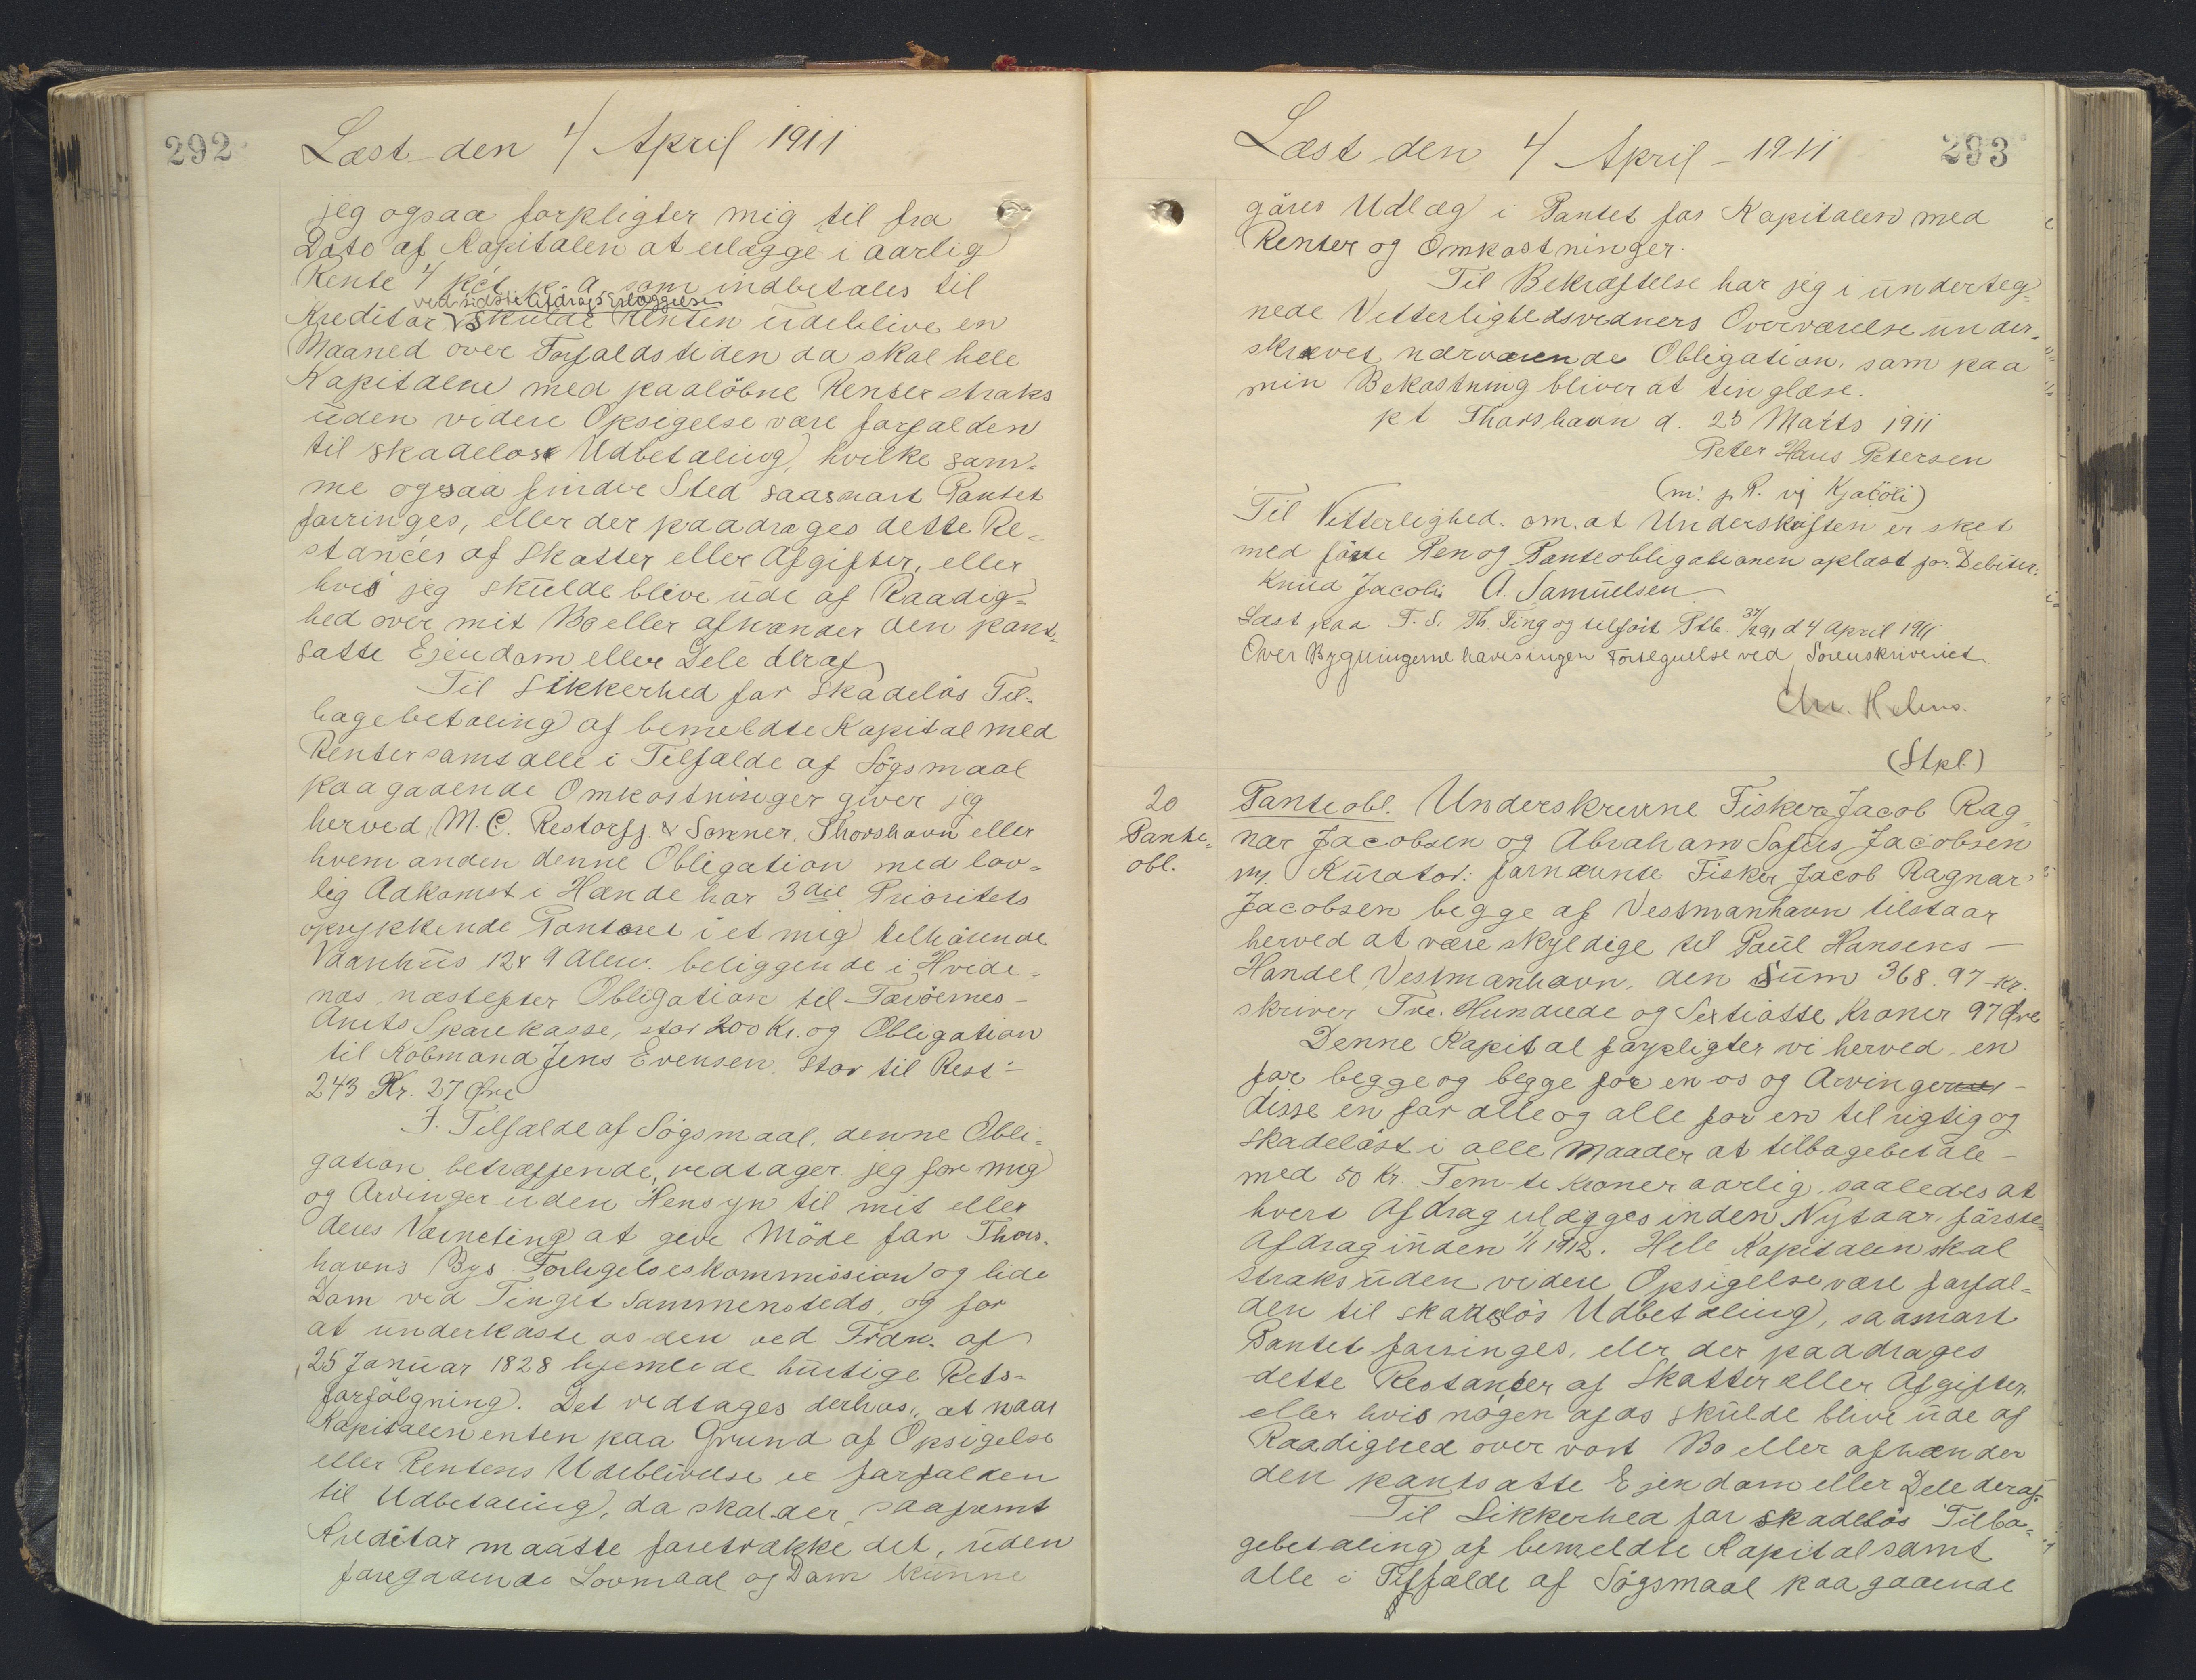 292
Læst den 4/ April 1911
jeg ogsaa forpligter mig til fra
Dato af Kapitalen at erlægge i aarlig
Rente 4 pCt. p. a. som indbetales til
ved sidste Afdrags Erlæggelse
Kreditor. Skulde Renten udeblive en
Maaned over Forfaldstiden da skal hele
Kapitalen med paaløbne Renter straks
uden videre Opsigelse være forfalden
til skadeløs Udbetaling, hvilke sam-
me ogsaa finder Sted saasnart Pantet
forringes, eller der paadrages dette Re-
stancer af Skatter eller Afgifter, eller
hvis jeg skulde blive ude af Raadig-
hed over mit Bo eller afhænder den pant-
satte Ejendom eller Dele deraf.
Til Sikkerhed for skadeløs Til-
bagebetaling af bemeldte Kapital med
Renter samt alle i Tilfælde af Søgsmaal
paagaaende Omkostninger giver jeg
herved M. C. Restorff. & Sønner, Thorshavn eller
hvem anden denne Obligation med lov-
lig Adkomst i Hænde har 3die Prioritets
oprykkende Panteret i et mig tilhørende
Vaanhus 12 x 9 Alen. beliggende i Hvide-
næs næstefter Obligation til Færøernes
Amts Sparekasse, stor 200 Kr. og Obligation
til Købmand Jens Evensen, stor til Rest -
243 Kr. 27 Øre
I. Tilfælde af Søgsmaal, denne Obli-
gation betræffende, vedtager jeg for mig
og Arvinger uden Hensyn til mit eller
deres Værneting at give Møde for Thors-
havns Bys Forligelseskommission og lide
Dom ved Tinget sammensteds, og for
at underkaste os den ved Frdn. af
25 Januar 1828 hjemlede hurtige Rets-
forfølgning. Det vedtages derhos, at naar
Kapitalen enten paa Grund af Opsigelse
eller Rentens Udeblivelse er forfalden
til Udbetaling, da skal der, saafremt
Kreditor maatte foretrække det, uden
foregaaende Lovmaal og Dom kunne
Læst den 4/ April - 1911
293
gøres Udlæg i Pantet for Kapitalen med
Renter og Omkostninger.
Til Bekræftelse har jeg i underteg-
nede Vitterlighedsvidners Overværelse under-
skrevet nærværende Obligation, som paa
min Bekostning bliver at tinglæse.
pt Thorshavn d. 25 Marts 1911
Peter Hans Petersen
(m. p. P. vj Kjaÿöli)
Til Vitterlighed. om. at Underskriften er sket
med førte Pen og Panteobligationen oplæst for Debitor:
Knud Jacobi A. Samuelsen
Læst paa F. S. Th. Ting og tilført Ptb. 37/291 d 4 April 1911
Over Bygningerne haves ingen Fortegnelse ved Sorenskriveriet
Chr. Helms.
(Stpl.)
20
Pante-
obl.
Panteobl. Underskrevne Fiskere Jacob Rag-
nar Jacobsen og Abraham Sofus Jacobsen
m. Kurator: fornævnte Fisker Jacob Ragnar
Jacobsen begge af Vestmanhavn tilstaar
herved at være skyldige til Paul Hansens -
Handel, Vestmanhavn, den Sum 368. 97 Kr.
skriver Tre. Hundrede og Sextiotte Kroner 97 Øre
Denne Kapital forpligter vi herved, en
for begge og begge for en os og Arvingerne -
disse en for alle og alle for en til rigtig og
skadeløst i alle Maader at tilbagebetale -
med 50 Kr. Fem-ti Kroner aarlig, saaledes at
hvert Afdrag erlægges inden Nytaar, første
Afdrag inden 1/1 1912. Hele Kapitalen skal
straks uden videre Opsigelse være forfal-
den til skadesløs Udbetaling, saasnart
Pantet forringes, eller der paadrages
dette Restancer af Skatter eller Afgifter,
eller hvis nogen af os skulde blive ude af
Raadighed over vort Bo eller afhænder
den pantsatte Ejendom eller Dele deraf.
Til Sikkerhed for skadeløs Tilba-
gebetaling af bemeldte Kapital samt
alle i Tilfælde af Søgsmaal paagaaende